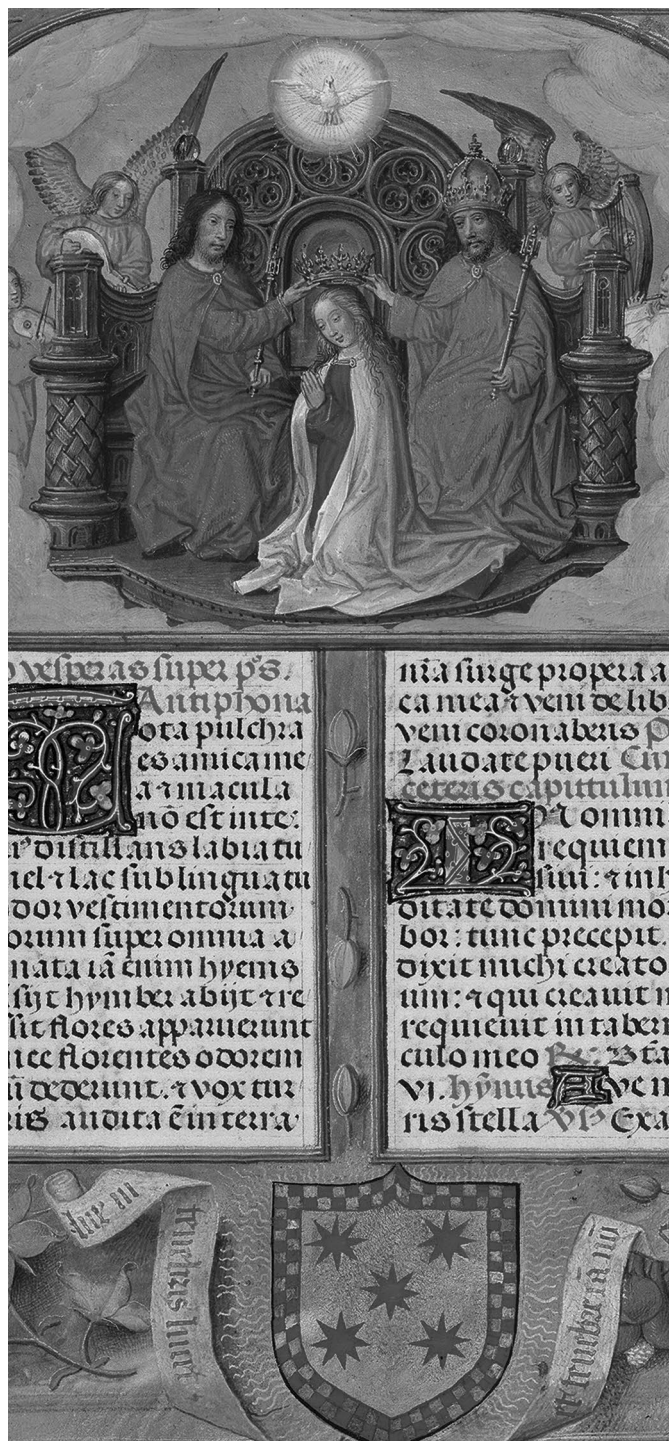 vesperas super ps.
Antiphona
Tota pulchra
es amica me
a ⁊ macula
nō est in te:
distillans labia tu
mel ⁊ lac sub lingua tu
odor vestimentorum
orum super omnia a
mata iā enim hyems
siit hymber abijt ⁊ re
sit flores apparuerunt
nee florentes odorem
dederunt. ⁊ vox tur
ris audita ē in terra
nr̄a surge propera a
ca mea ⁊ veni de lib
veni coronaberis
Laudate pueri
ceteris capittulum
IN omni
requiem
siui: ⁊ in h
ditate domini mor
bor: tunc precepit.
dixit michi creato
um: ⁊ qui creauit m
requieuit in taber
culo meo
vj. hȳnus Aue m
ris stella Exa
in
tenebris